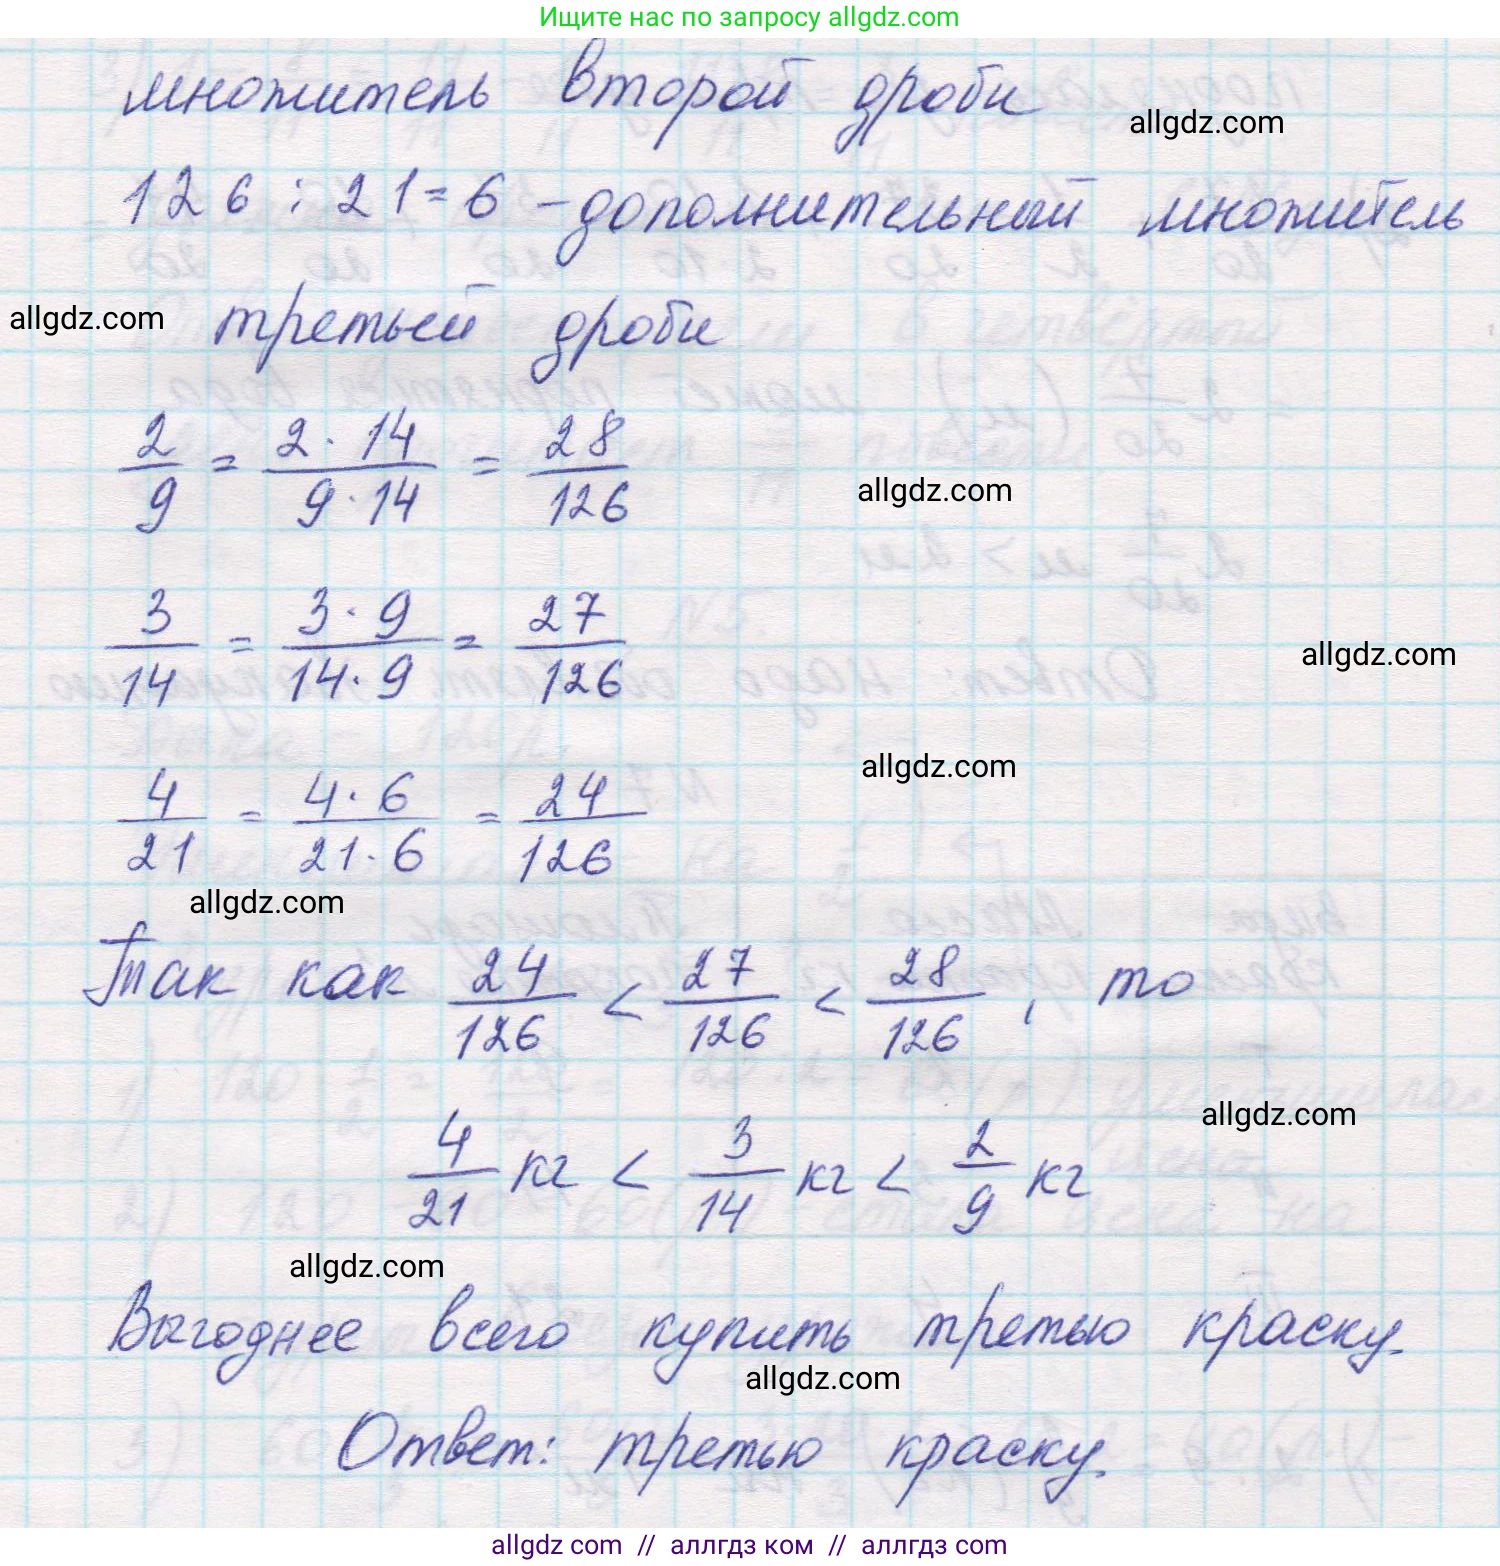 Ищите нас по запросу allgdz.com
множитель второй дроби
allgdz.com
126 : 21 = 6 - дополнительный множитель
allgdz.com
третьей дроби
2/9 = 2 · 14/9 · 14 = 28/126
allgdz.com
3/14 = 3 · 9/14 · 9 = 27/126
allgdz.com
allgdz.com
4/21 = 4 · 6/21 · 6 = 24/126
allgdz.com
Так как 24/126 < 27/126 < 28/126, то
allgdz.com
4/21 кг < 3/14 кг < 2/9 кг
allgdz.com
Выгоднее всего купить третью краску.
allgdz.com
Ответ: третью краску.
allgdz.com // аллгдз ком // allgdz.com